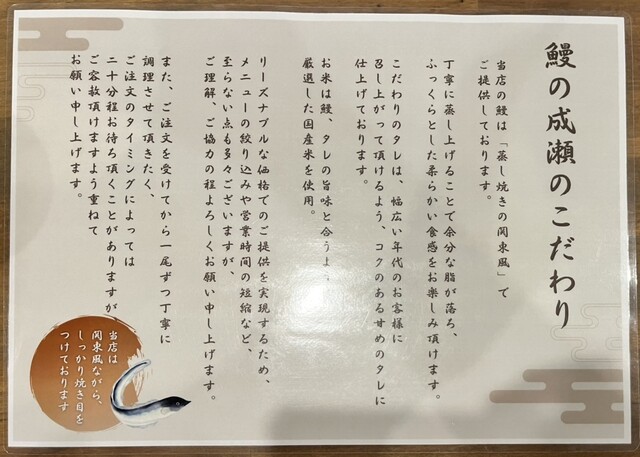 鰻の成瀬のこだわり
当店の鰻は「蒸し焼きの関東風」で
ご提供しております。
丁寧に蒸し上げることで余分な脂が落ち、
ふっくらとした柔らかい食感をお楽しみ頂けます。
こだわりのタレは、幅広い年代のお客様に
召し上がって頂けるよう、コクのある甘めのタレに
仕上げております。
お米は鰻、タレの旨味と合うよ
厳選した国産米を使用。
リーズナブルな価格でのご提供を実現するため、
メニューの絞り込みや営業時間の短縮など、
至らない点も多々ございますが、
ご理解、ご協力の程よろしくお願い申し上げます。
また、ご注文を受けてから一尾ずつ丁寧に
調理させて頂きたく、
ご注文のタイミングによっては
二十分程お待ち頂くことがありますが、
ご容赦頂けますよう重ねて
お願い申し上げます。
当店は
関東風ながら、
しっかり焼き目を
つけております